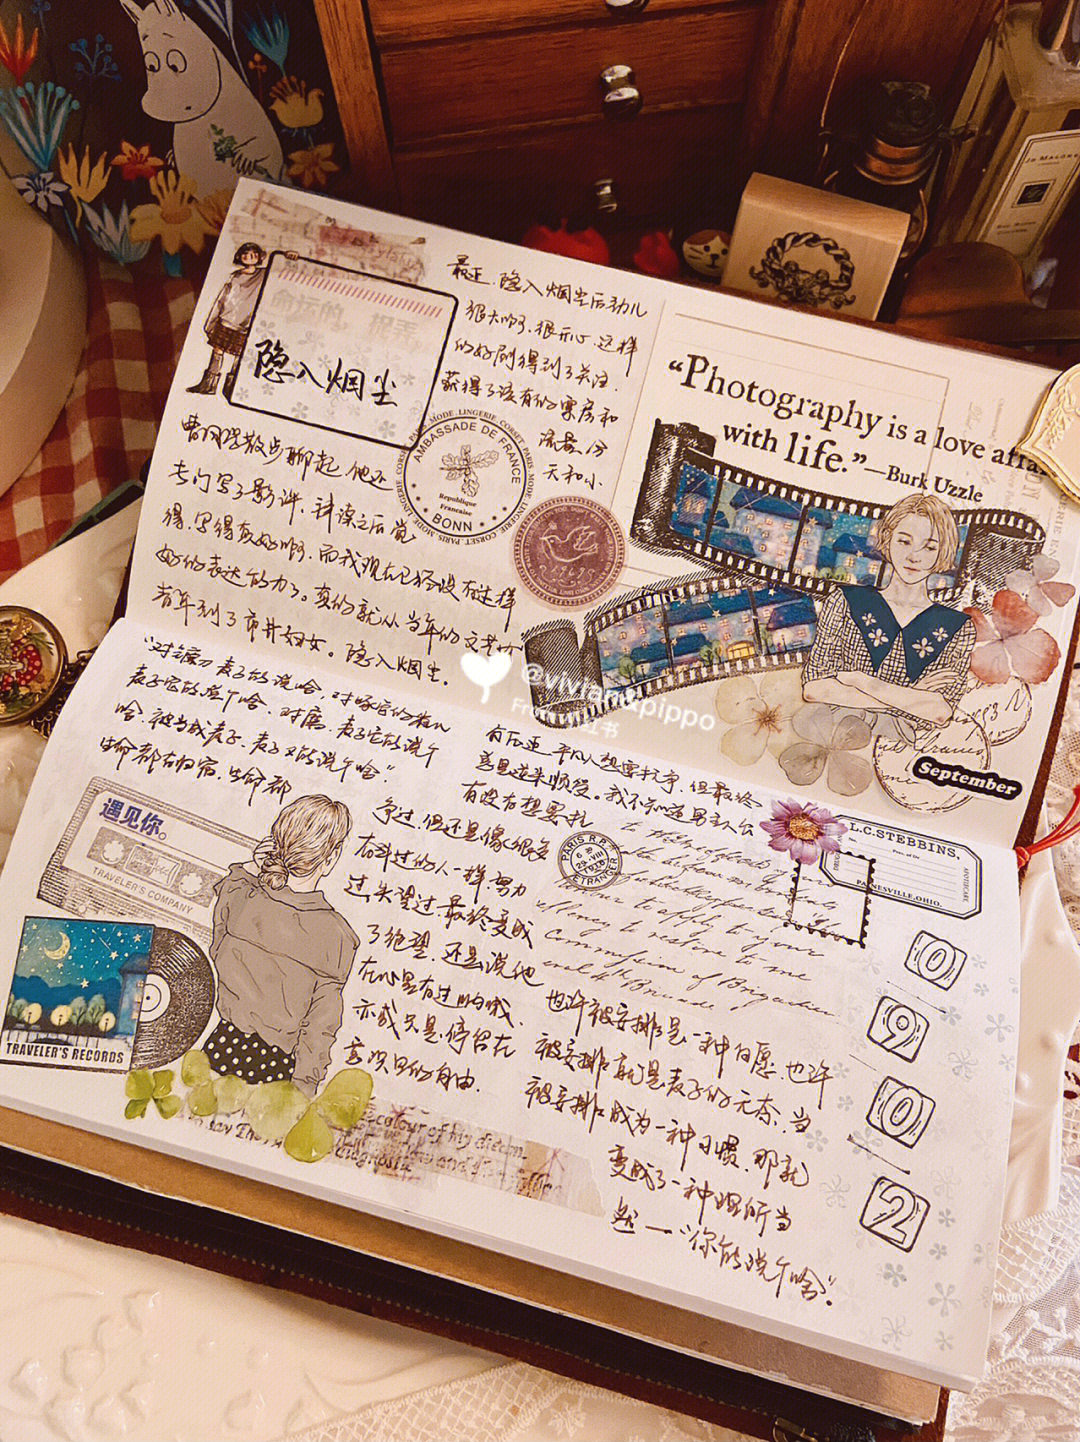 隐入烟尘
最近，隐入烟尘后劲儿
很大啊，很开心，这样
的好剧得到了关注，
获得了该有的票房和
流量。今
天和小
曹同学散步聊起，他还
专门写了影评，拜读之后觉
得，写得真好啊，而我现在已经没有这样
好的表达能力了。真的就从当年的文艺
青年到了市井妇女。隐入烟尘。
“对镰刀，麦子能说啥，对啄它的麻雀
麦子它能说个啥，对磨，麦子它能说个
啥，被当成麦子，麦子又能说个啥”
生命都有归宿，生命都
有压迫，平凡人想要抗争，但最终
总是逆来顺受。我不知道男主人公
有没有想要抗
争过，但还是像很多
奋斗过的人一样，努力
过，失望过，最终变成
了绝望，还是说他
在心里有过呐喊，
亦或只是停留在
意识里的自由。
也许被安排是一种自愿，也许
被安排就是麦子的无奈，当
被安排成为一种习惯，那就
变成了一种理所当
然——“你能说个啥”。
“Photography is a love affair
with life.”—Burk Uzzle
September
AMBASSADE DE FRANCE
Republique
Francaise
BONN
CORSET. PARIS. MODE. LINGERIE
@vivian&pippo
From 小红书
遇见你。
TRAVELER'S COMPANY
TRAVELER'S RECORDS
PARIS R.P.
ETRANGER
L.C.STEBBINS,
PAINESVILLE, OHIO.
0
9
0
2
colour of my dream
JO MALONE